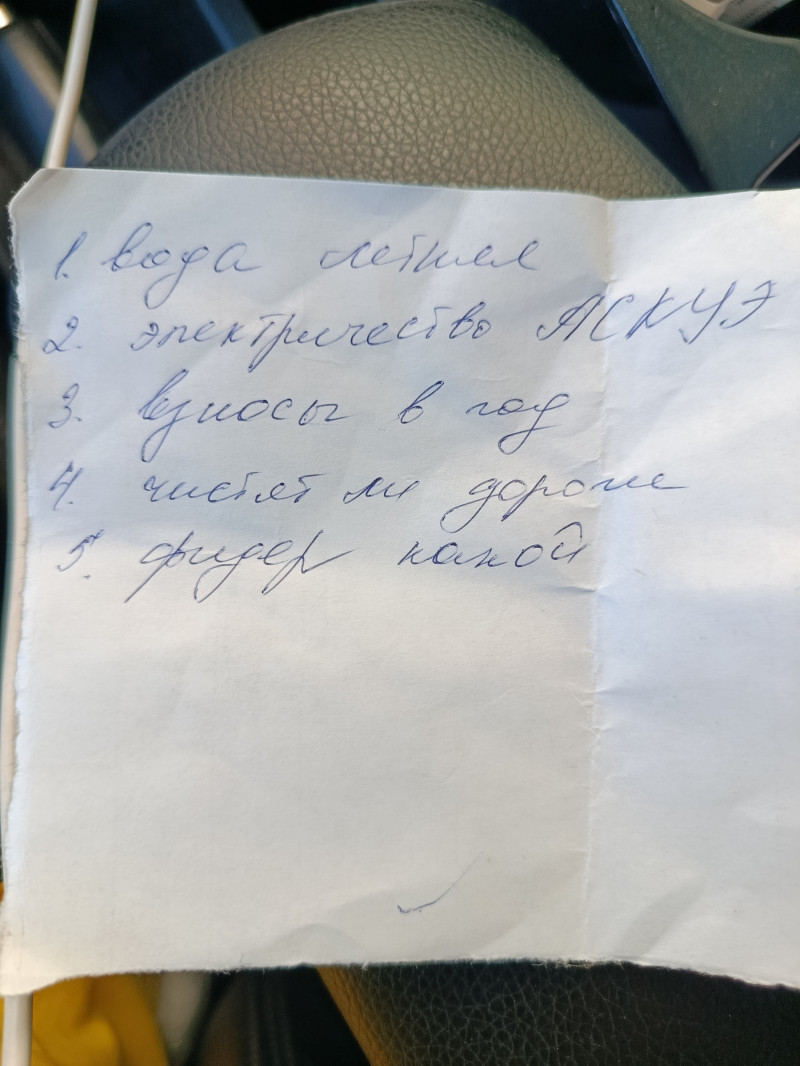 1. вода летняя
2. электричество АСКУЭ
3. взносы в год
4. чистят ли дороги
5. фидер какой